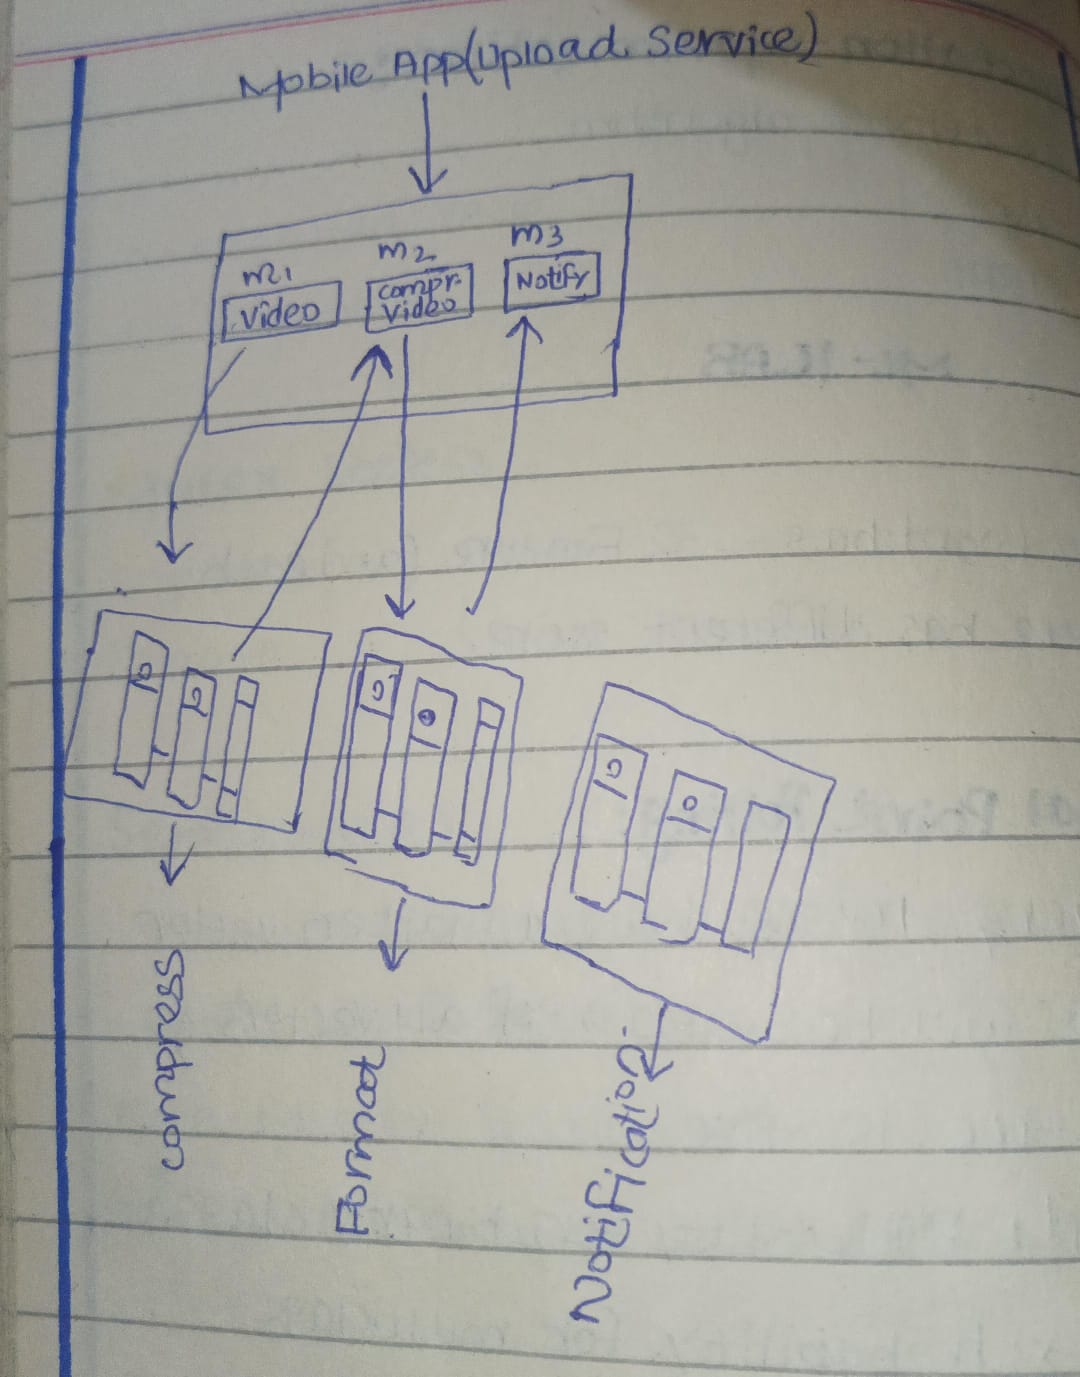 Mobile App(Upload Service)
m1
m2
m3
Video
compr.
Video
Notify
compress
Format
Notification